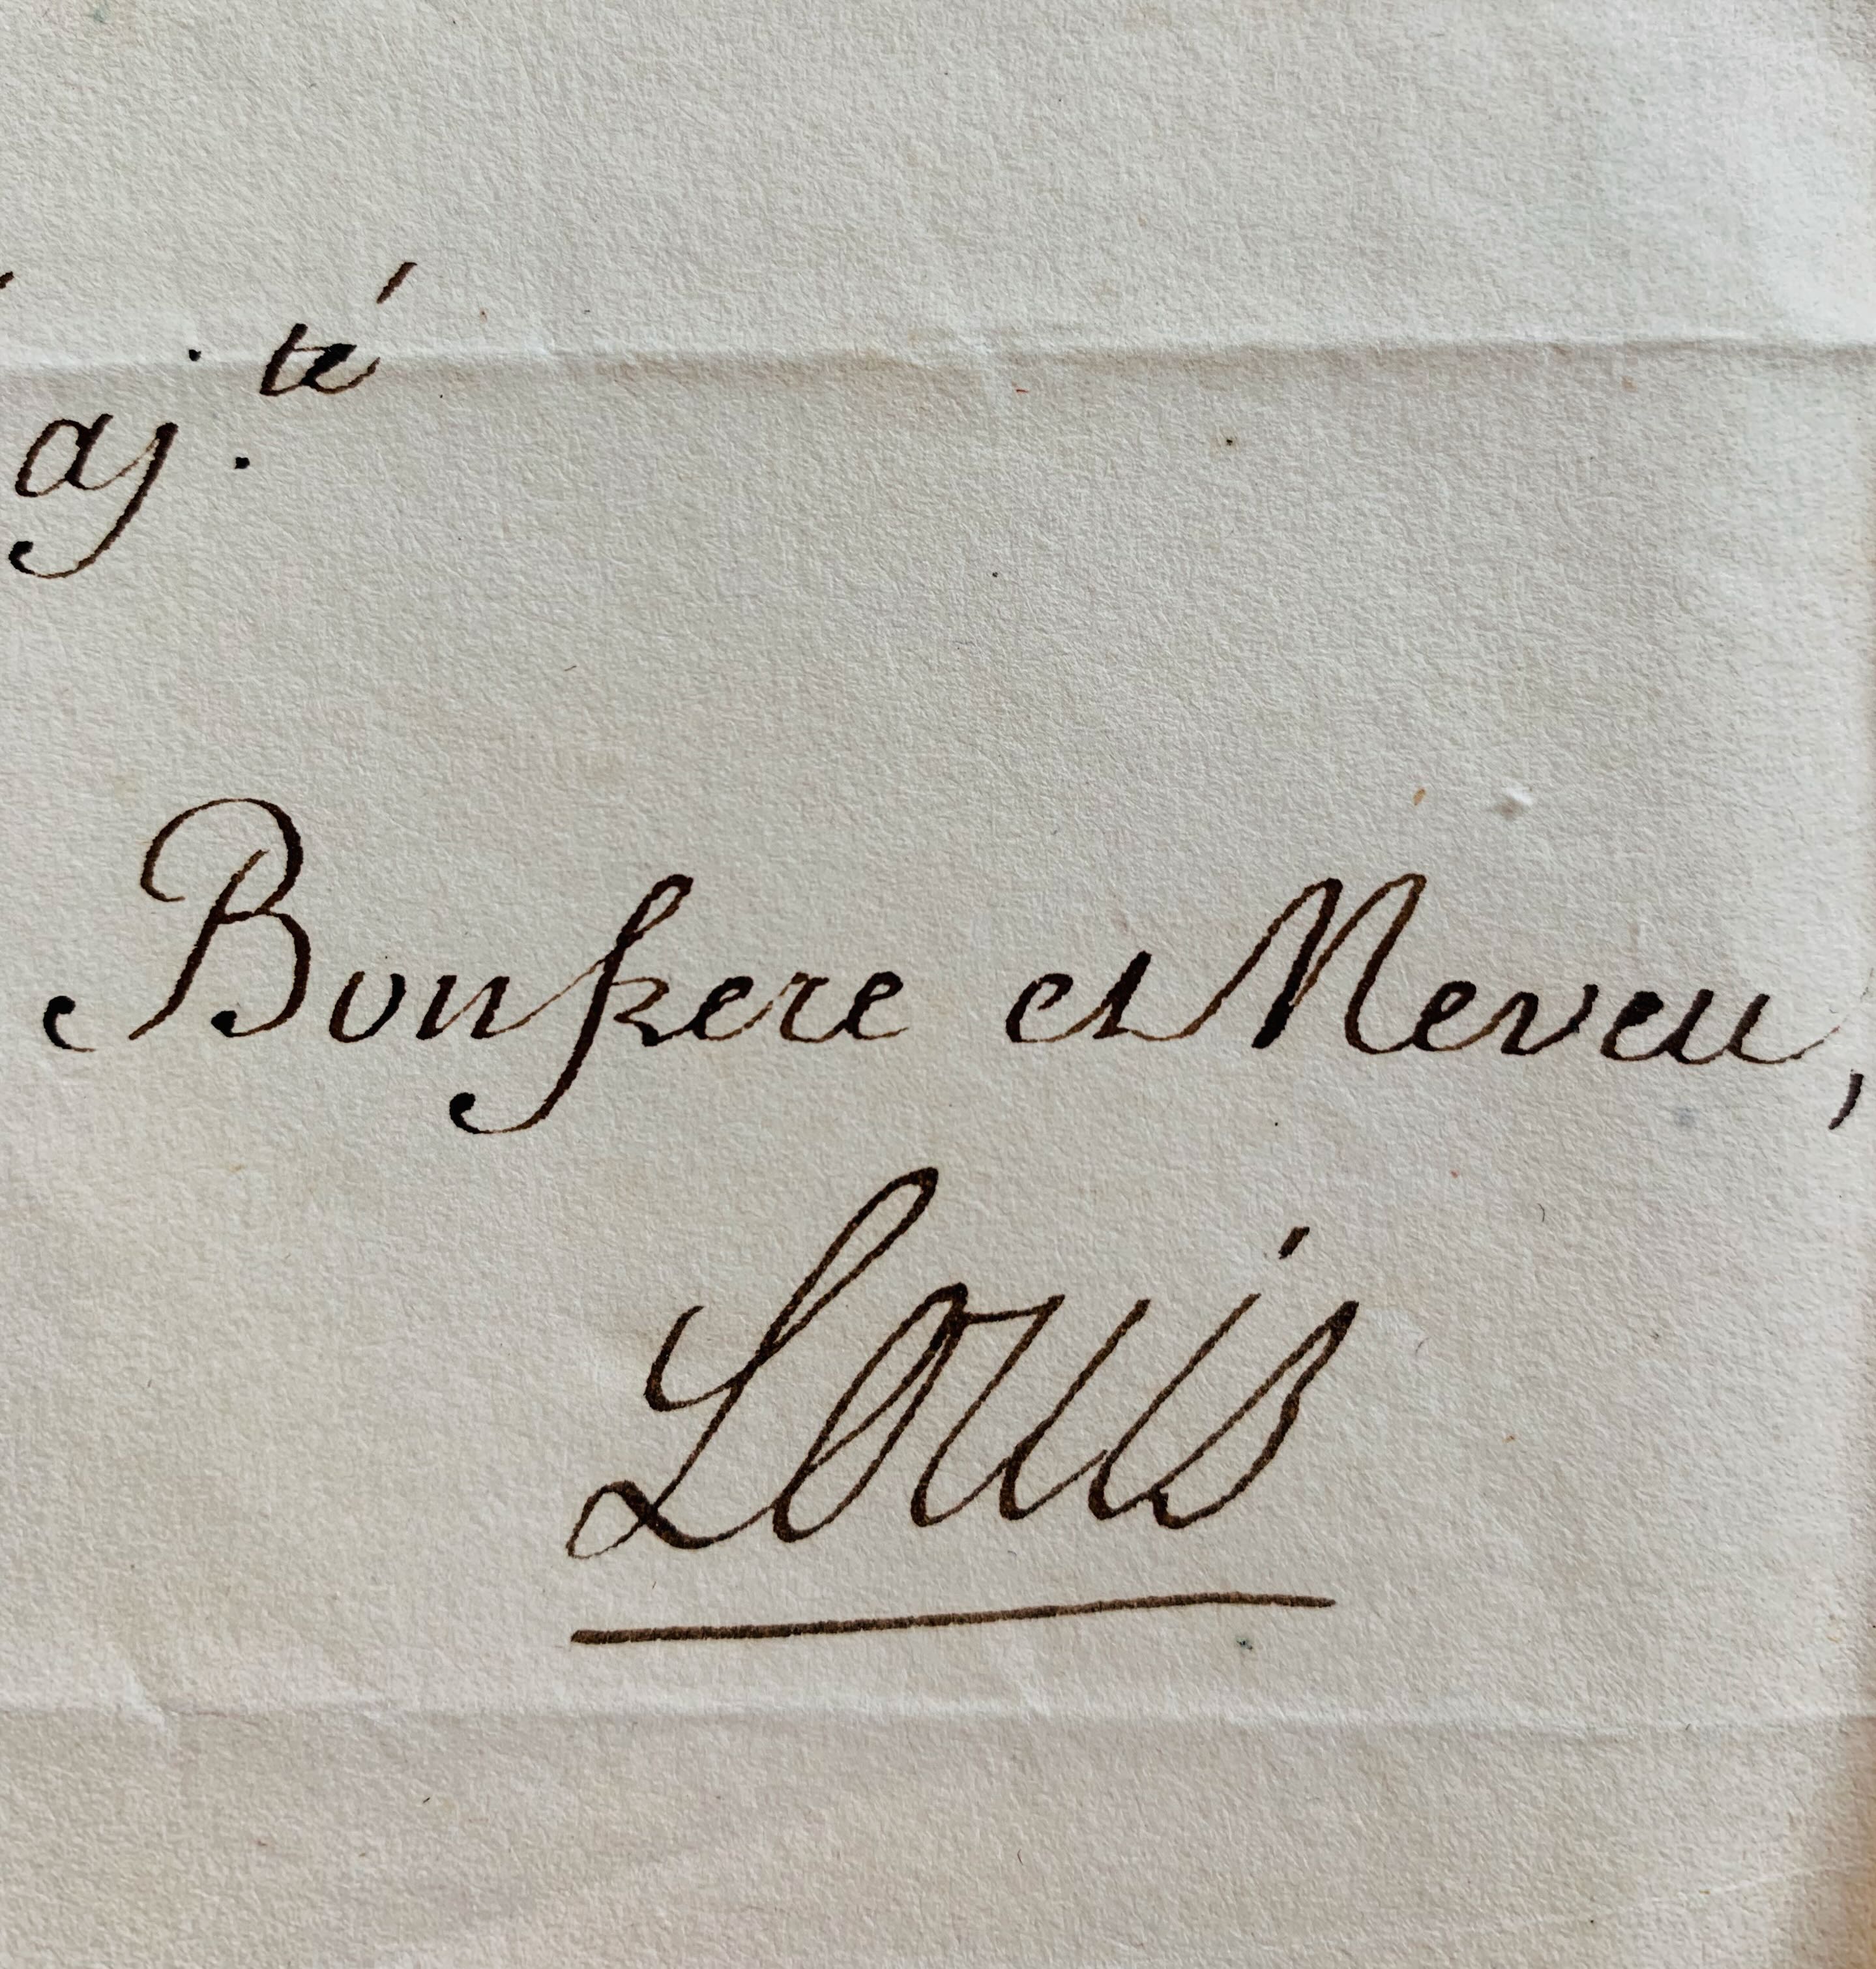 aj.té
Bon frere et Neveu,
Louis